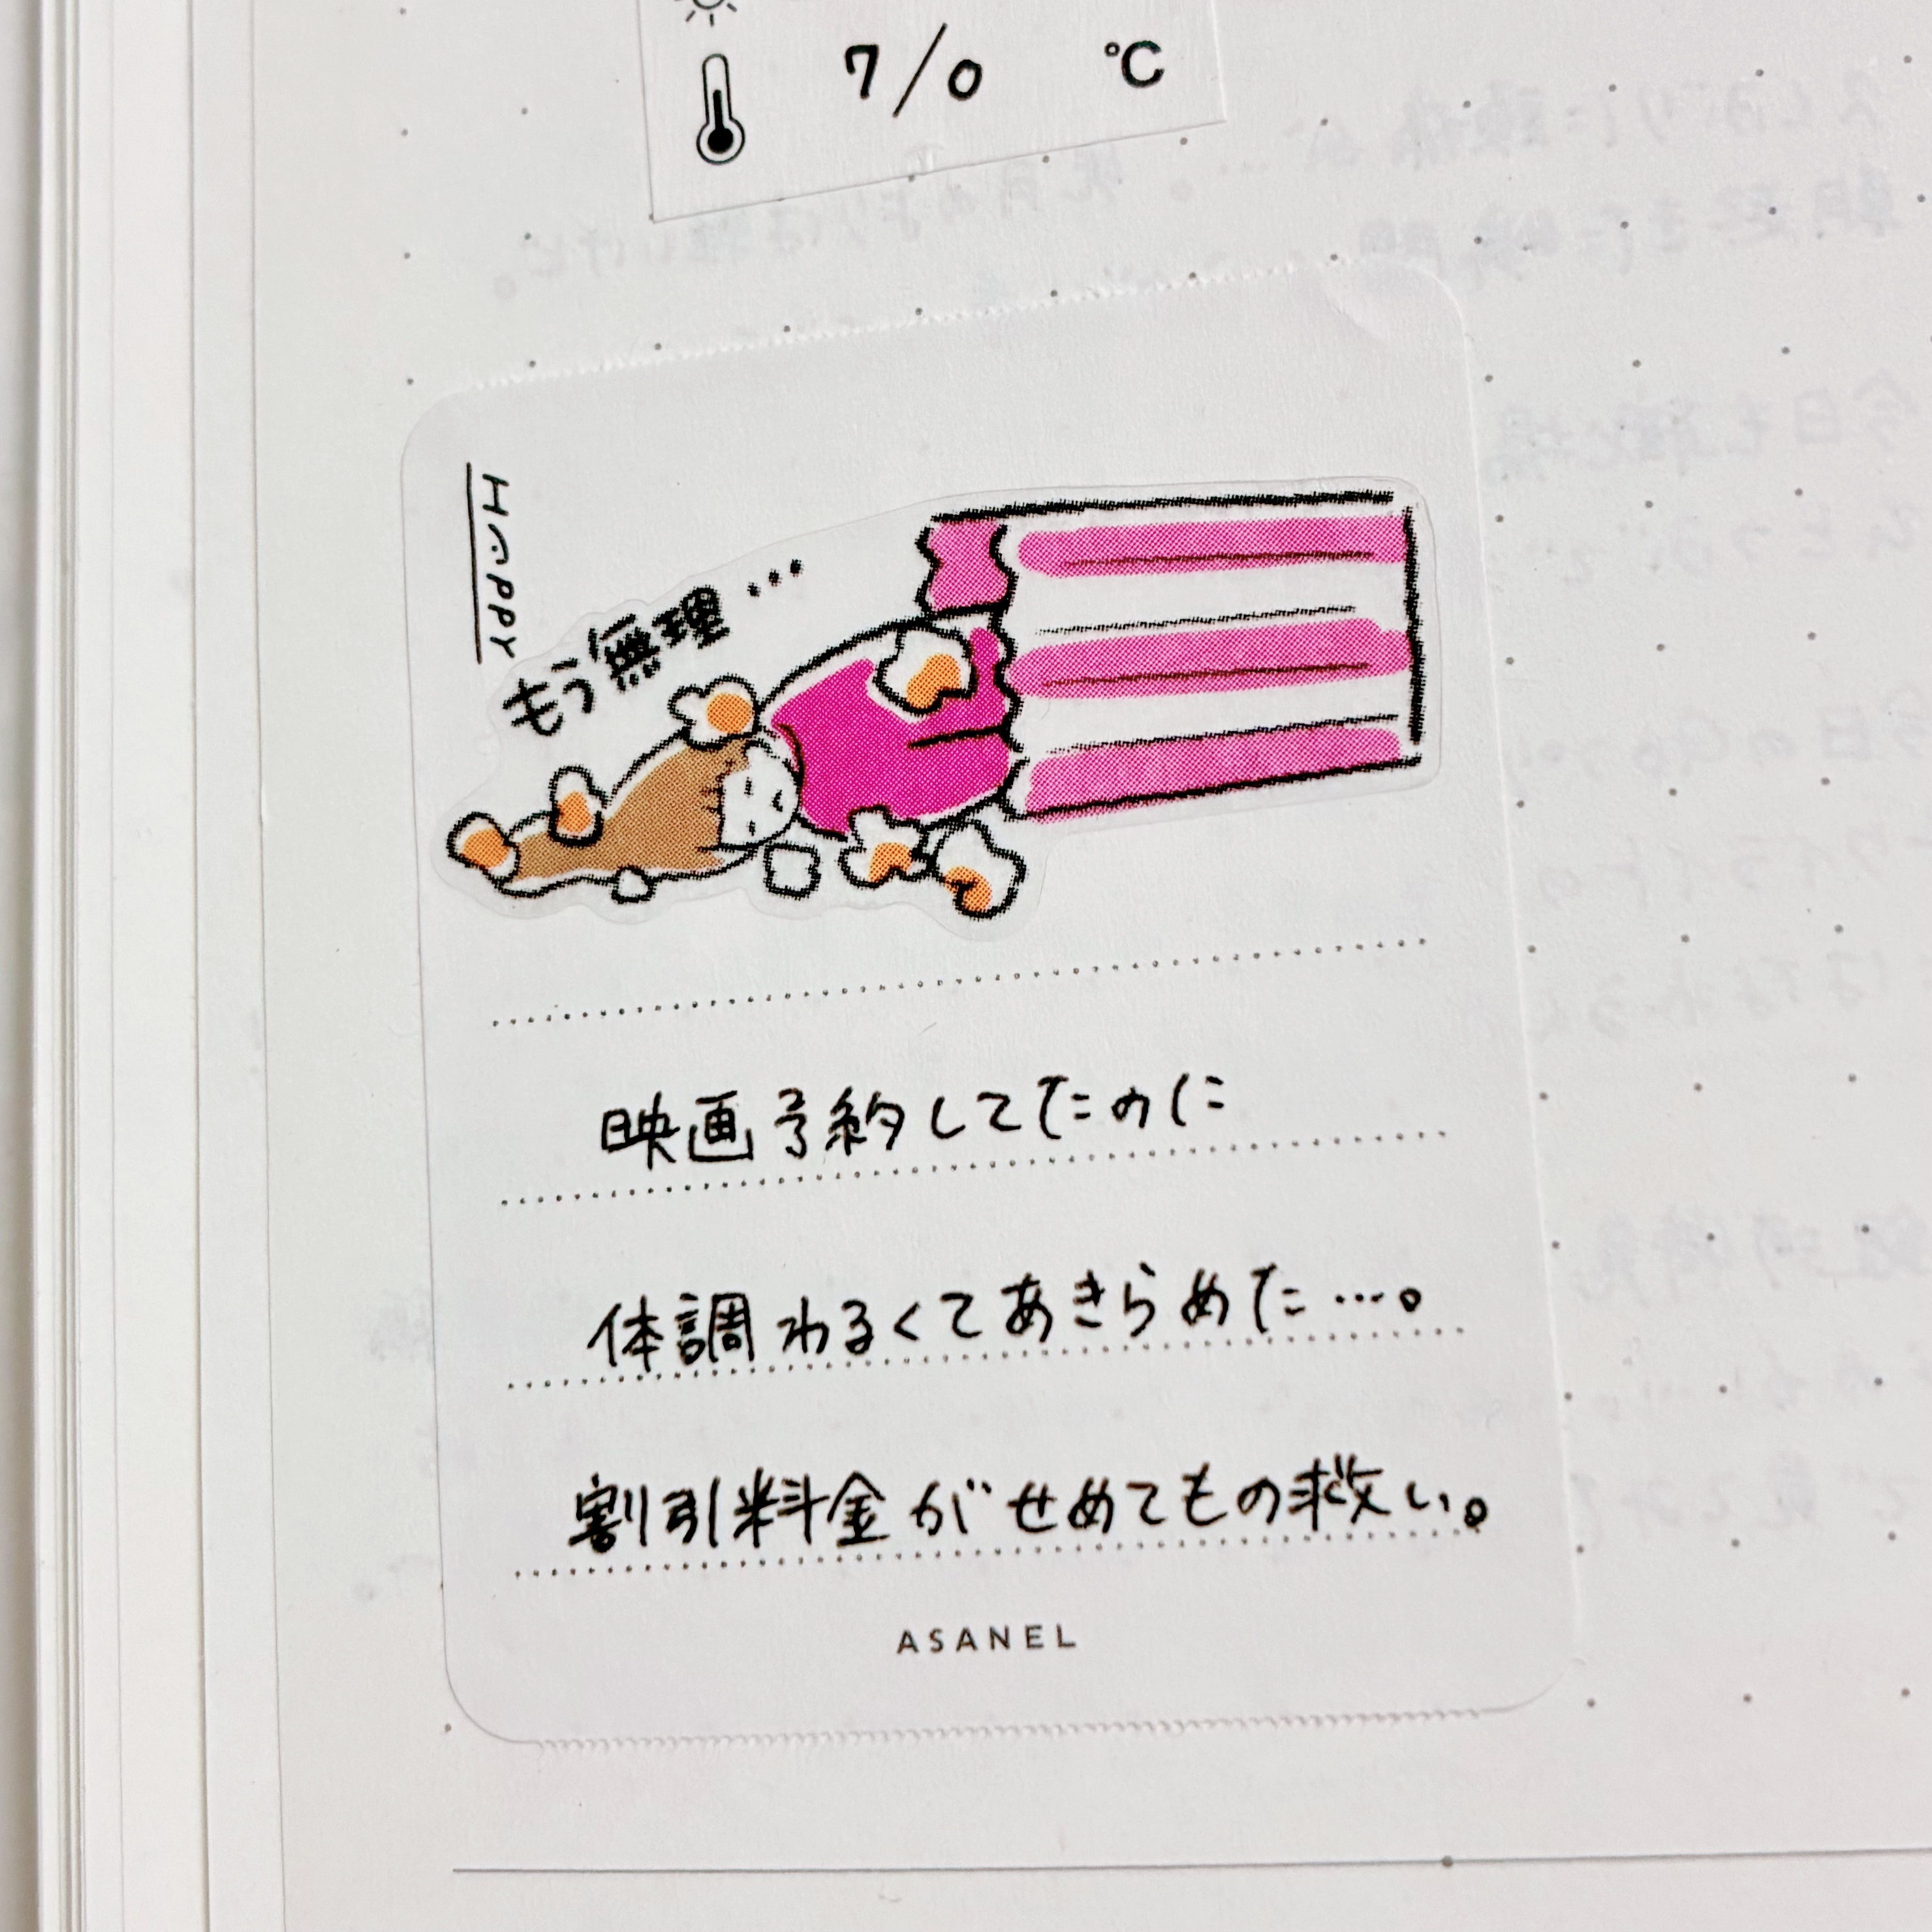 7/0 ℃
HAPPY
もう無理…
映画予約してたのに
体調わるくてあきらめた…。
割引料金がせめてもの救い。
ASANEL